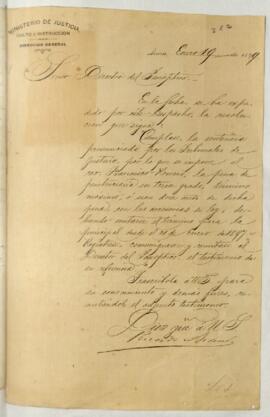 MINISTERIO DE JUSTICIA
CULTO É INSTRUCCION
DIRECCION GENERAL
Lima, Enero 19 de 189
Señor Director del Panóptico.
En la fecha se ha expe-
dido por este Despacho, la resolu-
cion que sigue:
Cúmplase la sentencia
pronunciada por los Tribunales de
Justicia, por la que se impone al
reo Francisco la pena de
penitenciaría en tercer grado, término
máximo, ó sean doce años de dicha
pena con las accesorias de ley;
contarse el término para la
principal desde el de Enero de 1897.
Regístrese, comuníquese y remítase al
Director del Panóptico, el testimonio de
su referencia
Trascríbola á US. para
su conocimiento y demás fines,
el adjunto testimonio.
Dios gue. á US.
Ricardo